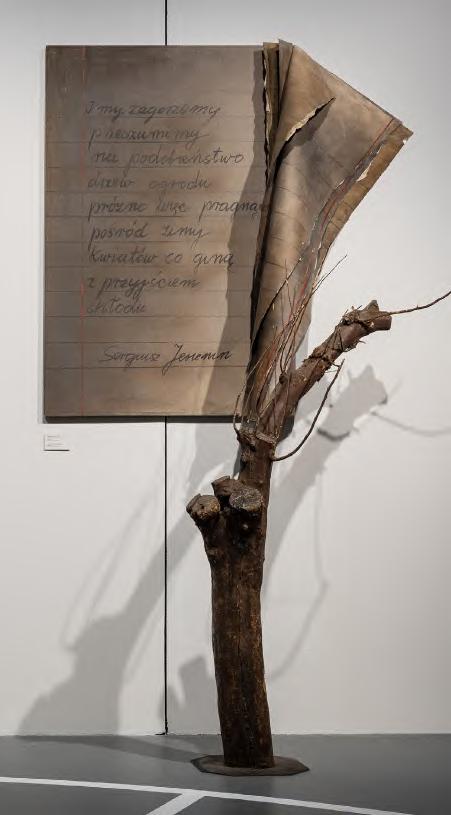 I my zagorzemy
przeszumimy
na podobieństwo
drzew ogrodu
próżno więc pragną
pośród zimy
kwiatów co giną
z przyjściem
chłodu
Sergiusz Jesienin